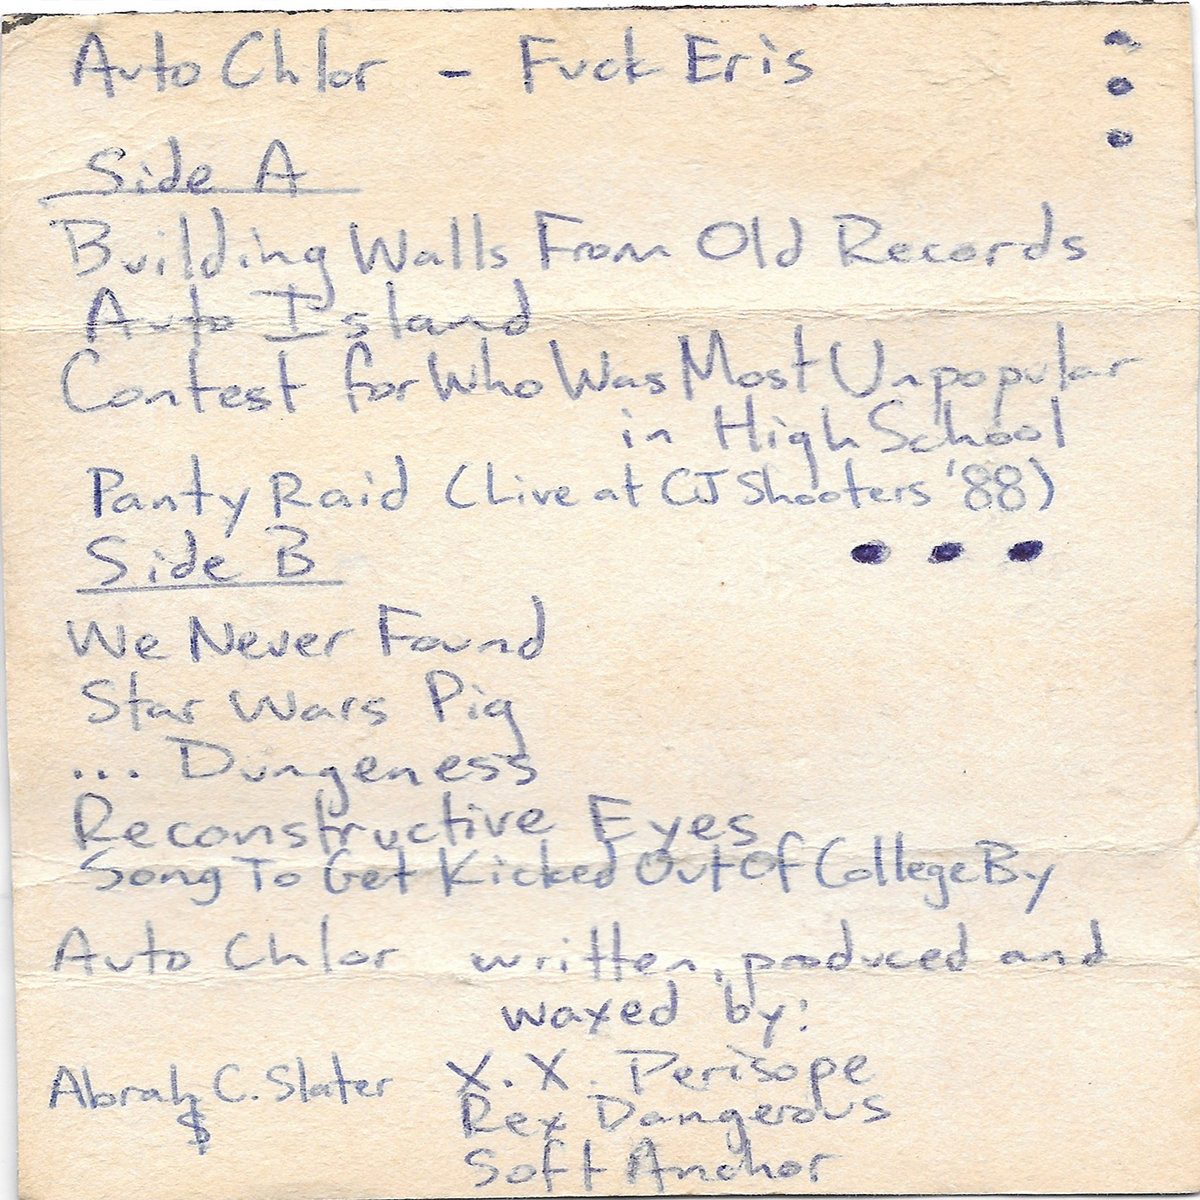 Auto Chlor - Fuck Eris
Side A
Building Walls From Old Records
Auto Island
Contest for Who Was Most Unpopular
in High School
Panty Raid (Live at CJ Shooters '88)
Side B
We Never Found
Star Wars Pig
... Dungeness
Reconstructive Eyes
Song To Get Kicked Out Of College By
Auto Chlor written, produced and
waxed by:
Abrah C. Slater X.X. Perisope
$ Rex Dangerous
Soft Anchor